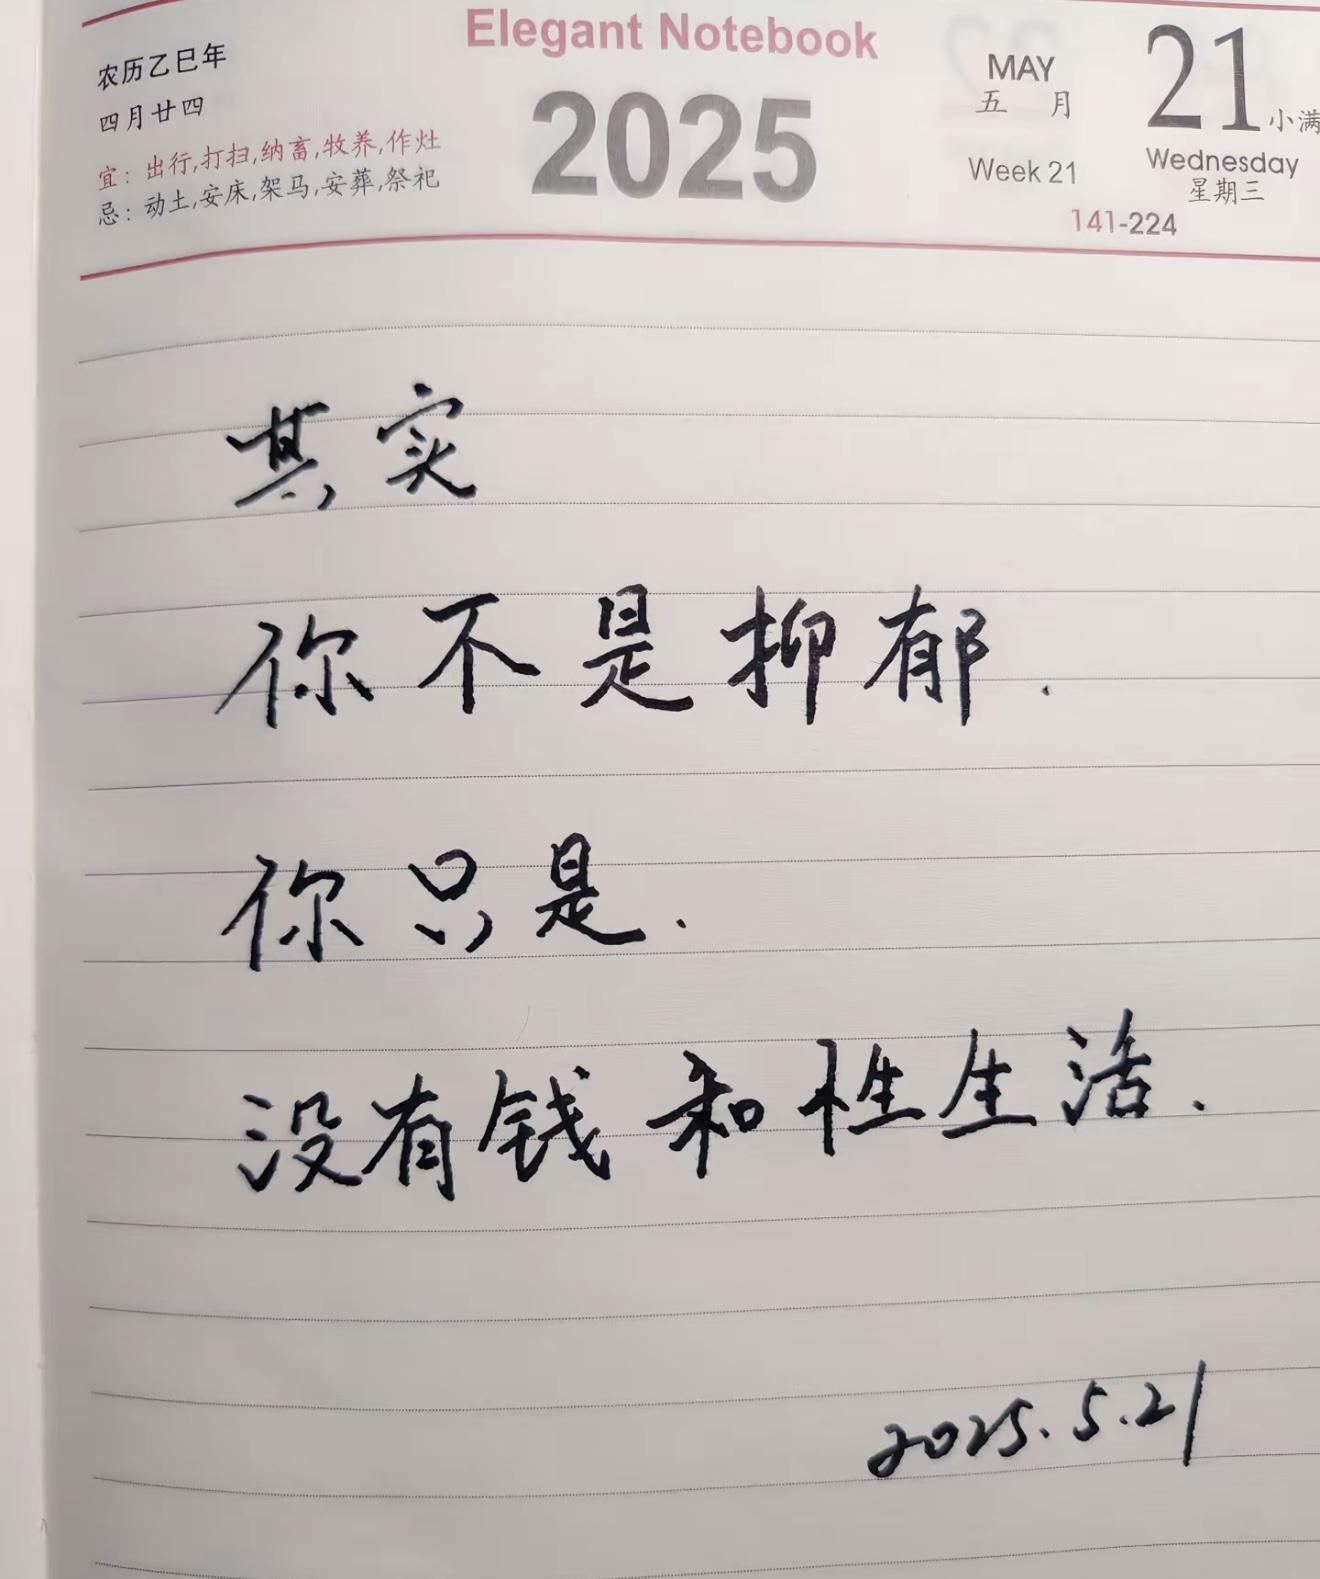 Elegant Notebook
农历乙巳年
四月廿四
宜：出行,打扫,纳畜,牧养,作灶
忌：动土,安床,架马,安葬,祭祀
2025
MAY
五 月
Week 21
21 小满
Wednesday
星期三
141-224
其实
你不是抑郁.
你只是.
没有钱和性生活.
2025.5.21